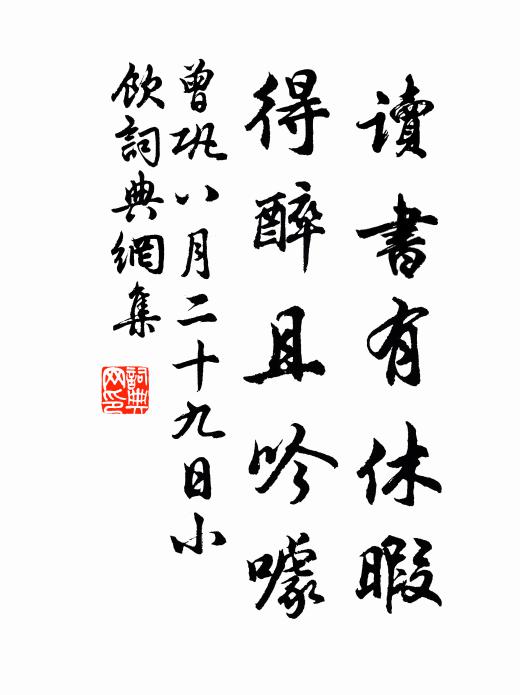 讀書有休暇
得醉且吟噱
曾鞏八月二十九日小
飲詞典網集
詞典网印